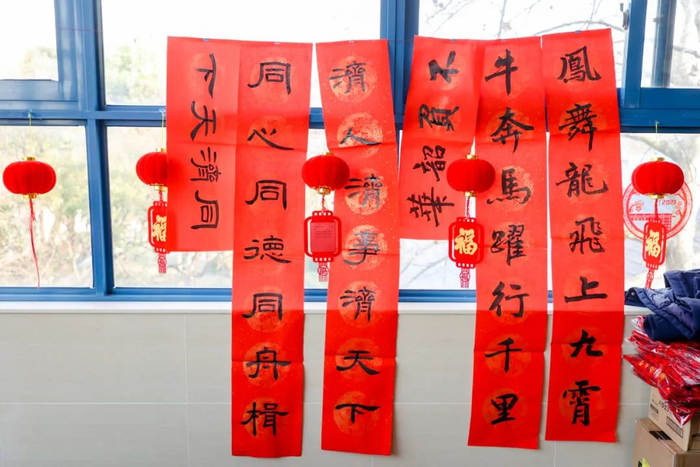 鳳舞龍飛上九霄
牛奔馬躍行千里
不負韶華
濟人濟事濟天下
同心同德同舟楫
同濟天下
福
福
福
2021